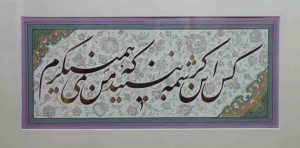 کس این کرشمه نبیند که من همی‌نگرم